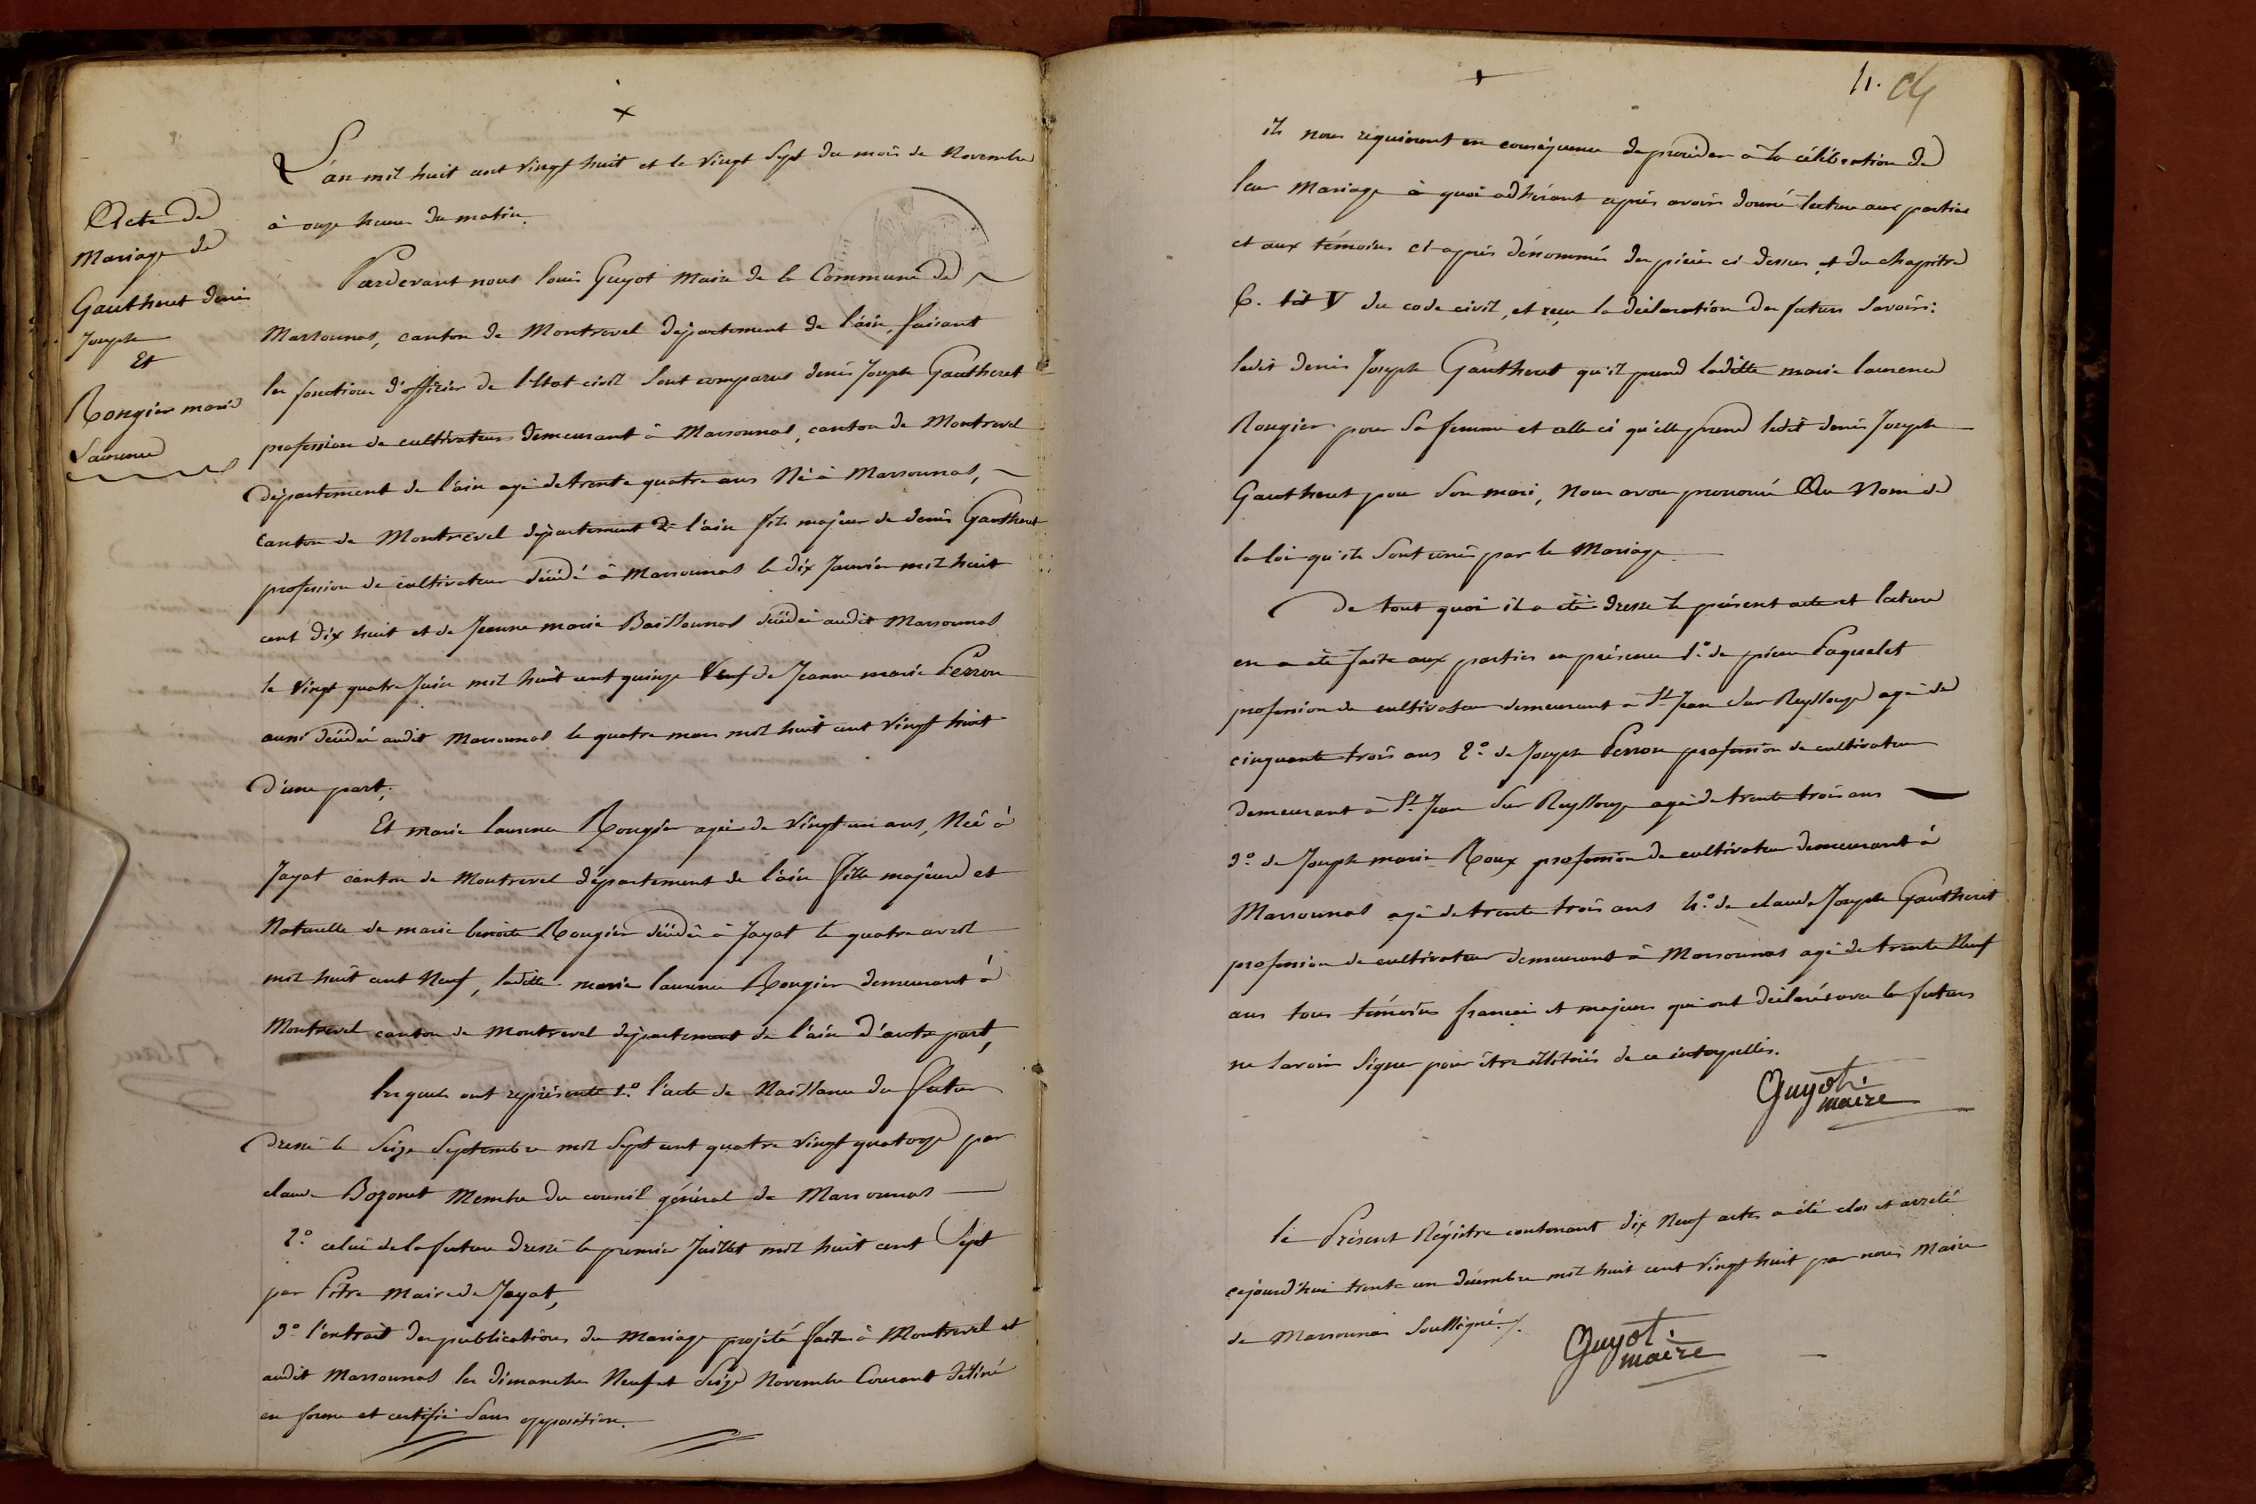 Acte de
Mariage de
Gautheret denis
Joseph
Et
Rongier marie
Laurence
L'an mil huit cent vingt huit et le vingt Sept du mois de Novembre
à onze heures du matin.
Pardevant nous louis Guyot Maire de la Commune de
Marsonnas, canton de Montrevel département de l'ain, faisant
les fonctions d'officier de l'Etat civil Sont comparus denis Joseph Gautheret
profession de cultivateur demeurant à Marsonnas, canton de Montrevel
département de l'ain agé de trente quatre ans Né à Marsonnas,
canton de Montrevel département de l'ain fils majeur de denis Gautheret
profession de cultivateur décédé à Marsonnas le dix Janvier mil huit
cent dix huit et de Jeanne marie décédée audit Marsonnas
le vingt quatre Juin mil huit cent quinze Veuf de Jeanne marie Perron
aussi décédée audit Marsonnas le quatre mars mil huit cent vingt huit
d'une part;
Et marie laurence Rongier agée de vingt un ans, Née à
Jayat canton de Montrevel département de l'ain fille majeure et
Naturelle de marie benoite Rongier décédée à Jayat le quatre avril
mil huit cent Neuf, ladite marie laurence Rongier demeurant à
Montrevel canton de Montrevel département de l'ain d'autre part,
lesquels ont représenté 1.° l'acte de Naissance du futur
dressé le Seize Septembre mil Sept cent quatre vingt quatorze par
claude Bozonet Membre du conseil général de Marsonnas
2.° celui de la future dressé le premier Juillet mil huit cent Sept
par Pitre Maire de Jayat,
3.° l'extrait des publications du Mariage projeté faites à Montrevel et
audit Marsonnas les dimanches Neuf et Seize Novembre Courant délivré
en forme et certifié Sans opposition.
4.
ils nous requierent en conséquence de procéder à la célébration de
leur Mariage à quoi adhérant après avoir donné lecture aux parties
et aux témoins ci-après dénommés des pièces ci dessus et du chapitre
6. tit V du code civil, et reçu la déclaration des futurs Savoir:
ledit denis Joseph Gautheret qu'il prend ladite marie laurence
Rongier pour Sa femme et celle ci qu'elle prend ledit denis Joseph
Gautheret pour Son mari, Nous avons prononcé Au Nom de
la loi qu'ils Sont unis par le Mariage
De tout quoi il a été dressé le présent acte et lecture
en a été faite aux parties en présence 1.° de pierre Paquelet
profession de cultivateur demeurant à St Jean Sur Reyssouze agé de
cinquante trois ans 2.° de Joseph Perron profession de cultivateur
demeurant à St Jean Sur Reyssouze agé de trente trois ans
3.° de Joseph marie Roux profession de cultivateur demeurant à
Marsonnas agé de trente trois ans 4.° de claude Joseph Gautheret
profession de cultivateur demeurant à Marsonnas agé de trente Neuf
ans tous témoins français et majeurs qui ont déclaré avec les futurs
ne Savoir Signer pour être illitérés de ce interpellés.
Guyot.
maire
le Présent Régistre contenant dix Neuf actes a été clos et arreté
cejourd'hui trente un décembre mil huit cent vingt huit par nous Maire
de Marsonnas Soussigné./.
Guyot.
maire